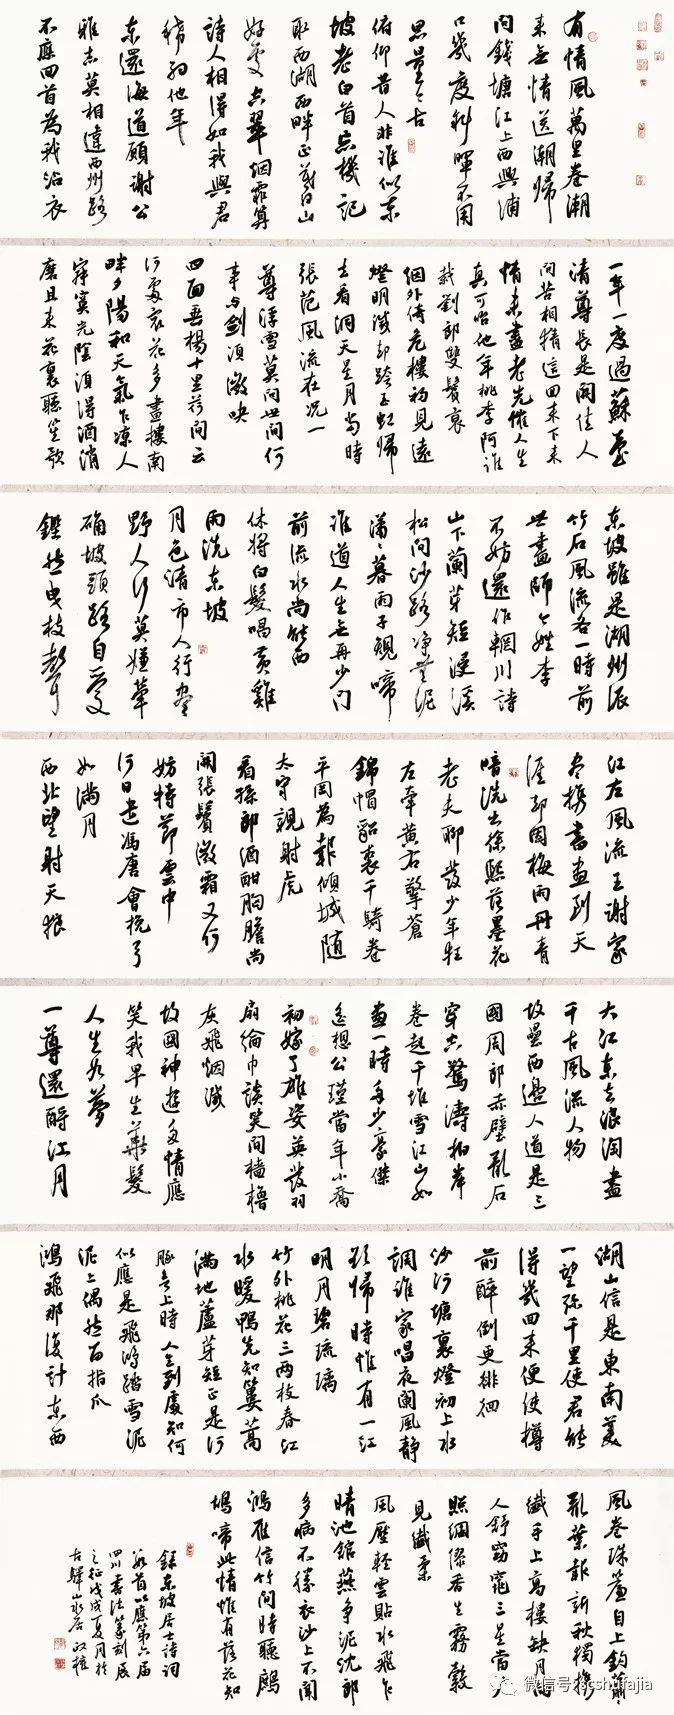 有情風萬里卷潮
來無情送潮歸
問錢塘江上西興浦
口幾度斜暉不用
思量今古
俯仰昔人非誰似東
坡老白首忘機記
取西湖西畔正暮山
好處空翠烟霏算
詩人相得如我與君
稀約他年
東還海道願謝公
雅志莫相違西州路
不應回首為我沾衣
一年一度過蘇臺
清尊長是開佳人
問苦相猜這回來不來
情未盡老先催人生
真可咍他年桃李阿誰
栽劉郎雙鬢衰
外倚危樓初見遠
燈明滅却跨玉虹歸
去看洞天星月當時
張范風流在況一
尊浮雪莫問世間何
事與劍頭微吷
四面垂楊十里荷問云
何處最花多畫樓南
畔夕陽和天氣乍涼人
寂寞光陰須得酒消
磨且來花裏聽笙歌
東坡雖是湖州派
竹石風流各一時前
世畫師今姓李
不妨還作輞川詩
山下蘭芽短浸溪
松間沙路淨無泥
瀟瀟暮雨子規啼
誰道人生無再少門
前流水尚能西
休將白髮唱黃雞
雨洗東坡
月色清市人行盡
野人行莫嫌犖
确坡頭路自愛
鏗然曳杖聲
江左風流王謝家
盡攜書畫到天
涯却因梅雨丹青
暗洗出徐熙落墨花
老夫聊發少年狂
左牽黃右擎蒼
錦帽貂裘千騎卷
平岡為報傾城隨
太守親射虎
看孫郎酒酣胸膽尚
開張鬢微霜又何
妨持節雲中
何日遣馮唐會挽弓
如滿月
西北望射天狼
大江東去浪淘盡
千古風流人物
故壘西邊人道是三
國周郎赤壁亂石
穿空驚濤拍岸
卷起千堆雪江山如
畫一時多少豪傑
遙想公瑾當年小喬
初嫁了雄姿英發羽
扇綸巾談笑間檣櫓
灰飛烟滅
故國神遊多情應
笑我早生華髮
人生如夢
一尊還酹江月
湖山信是東南美
一望彌千里使君能
得幾回來便使樽
前醉倒更徘徊
沙河塘裏燈初上水
調誰家唱夜闌風靜
欲歸時惟有一江
明月碧琉璃
竹外桃花三兩枝春江
水暖鴨先知蔞蒿
滿地蘆芽短正是河
豚欲上時人生到處知何
似應是飛鴻踏雪泥
泥上偶然留指爪
鴻飛那復計東西
風卷珠簾自上鈎蕭蕭
亂葉報新秋獨攜
纖手上高樓缺月向
人舒窈窕三星當戶
照綢繆香生霧縠
見纖柔
風壓輕雲貼水飛乍
晴池館燕爭泥沈郎
多病不勝衣沙上不聞
鴻雁信竹間時聽鷓
鴣啼此情惟有落花知
錄東坡居士詩詞
數首以應第六屆
四川書法篆刻展
之征戊戌夏月於
古驛水居
微信号: scshufajia